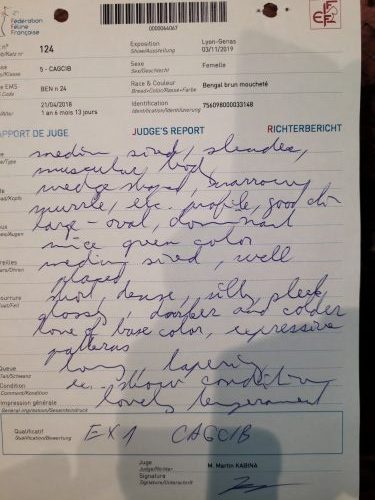 2°
Fédération
Féline
Française
0000064067
FF
n°
124
Exposition
Show/Ausstellung
Lyon-Genas
03/11/2019
Classe
5 - CAGCIB
Sexe
Sex/Geschlecht
Femelle
EMS
Code
BEN n 24
Race & Couleur
Breed+Color/Rasse+Farbe
Bengal brun moucheté
21/04/2018
1 an 6 mois 13 jours
Identification
Identification/Identifizierung
756098000033148
APPORT DE JUGE
JUDGE'S REPORT
RICHTERBERICHT
medium sized, slender,
muscular, body
wedge shaped, narrowing
muzzle, etc. profile, good chin
large - oval, dominant
nice green color
medium sized, well
placed
short, dense, silky sleek
glossy, darker and colder
tone of base color, expressive
patterns
long, tapering
ex. show condition
lovely temperament
Queue
Tail/Schwanz
Condition
Comment/Kondition
Impression générale
General impression/Gesamteindruck
Qualificatif
Qualification/Bewertung
EX1 CAGCIB
Juge
Judge/Richter
M. Martin KABINA
Signature
Signature/Unterschrift